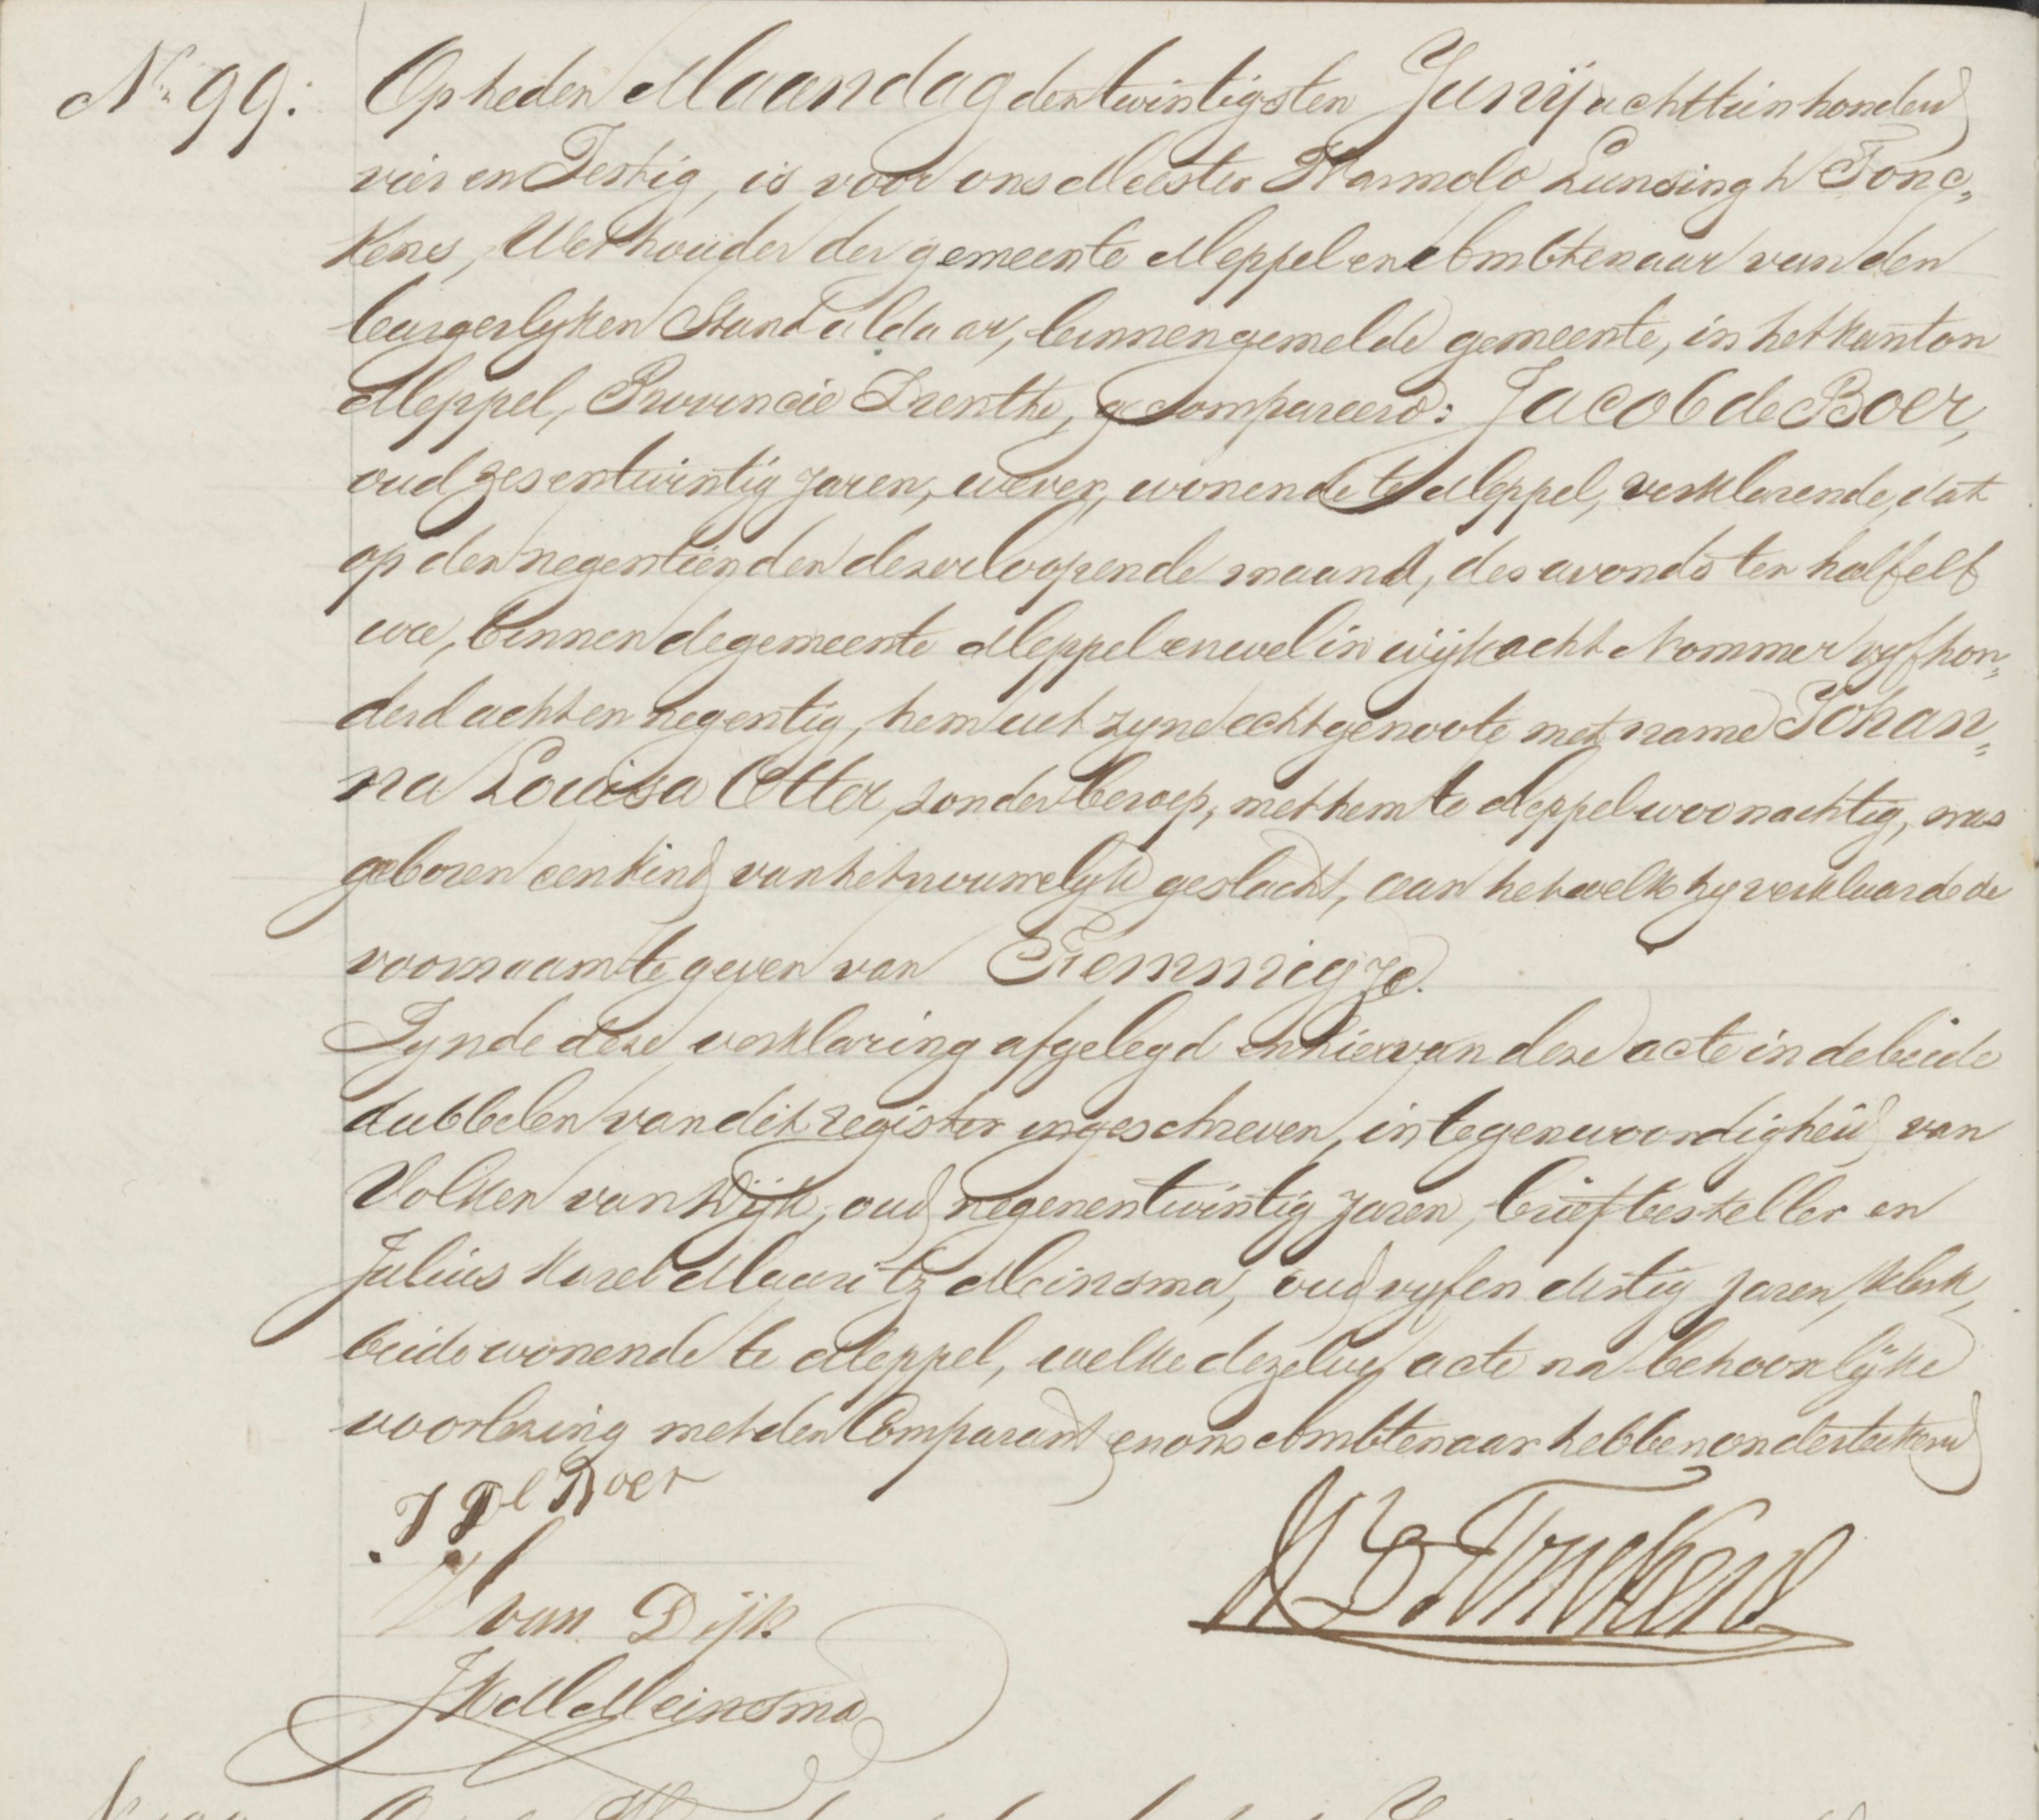 No. 99. Op heden Maandag den twintigsten Junij achttien honderd
vier en Sestig, is voor ons Meester Warmolo Lunsingh Tonc-
kens, Wethouder der gemeente Meppel en Ambtenaar van den
burgerlyken Stand aldaar, binnen gemelde gemeente, in het kanton
Meppel, Provincie Drenthe, gecompareerd: Jacob de Boer,
oud zes en twintig jaren, wever, wonende te Meppel, verklarende, dat
op den negentienden dezer loopende maand, des avonds ten half elf
ure, binnen de gemeente Meppel en wel in wijk acht Nommer vyfhon-
derd acht en negentig, hem uit zyne echtgenoote met name Johan-
na Louisa Otter, zonder beroep, met hem te Meppel woonachtig, was
geboren een kind van het vrouwelyk geslacht, aan hetwelk hy verklaarde de
voornaam te geven van Femmigje.
Zynde deze verklaring afgelegd en hiervan deze acte in de beide
dubbelen van dit register ingeschreven, in tegenwoordigheid van
Volken van Dijk, oud negen en twintig jaren, briefbesteller en
Julius Karel Mauritz Meinsma, oud vyf en dertig jaren, klerk,
beide wonende te Meppel, welke dezelve acte na behoorlijke
voorlezing met den Comparant en ons Ambtenaar hebben onderteekend
J De Boer
W L Tonckens
V van Dijk
JKMMeinsma